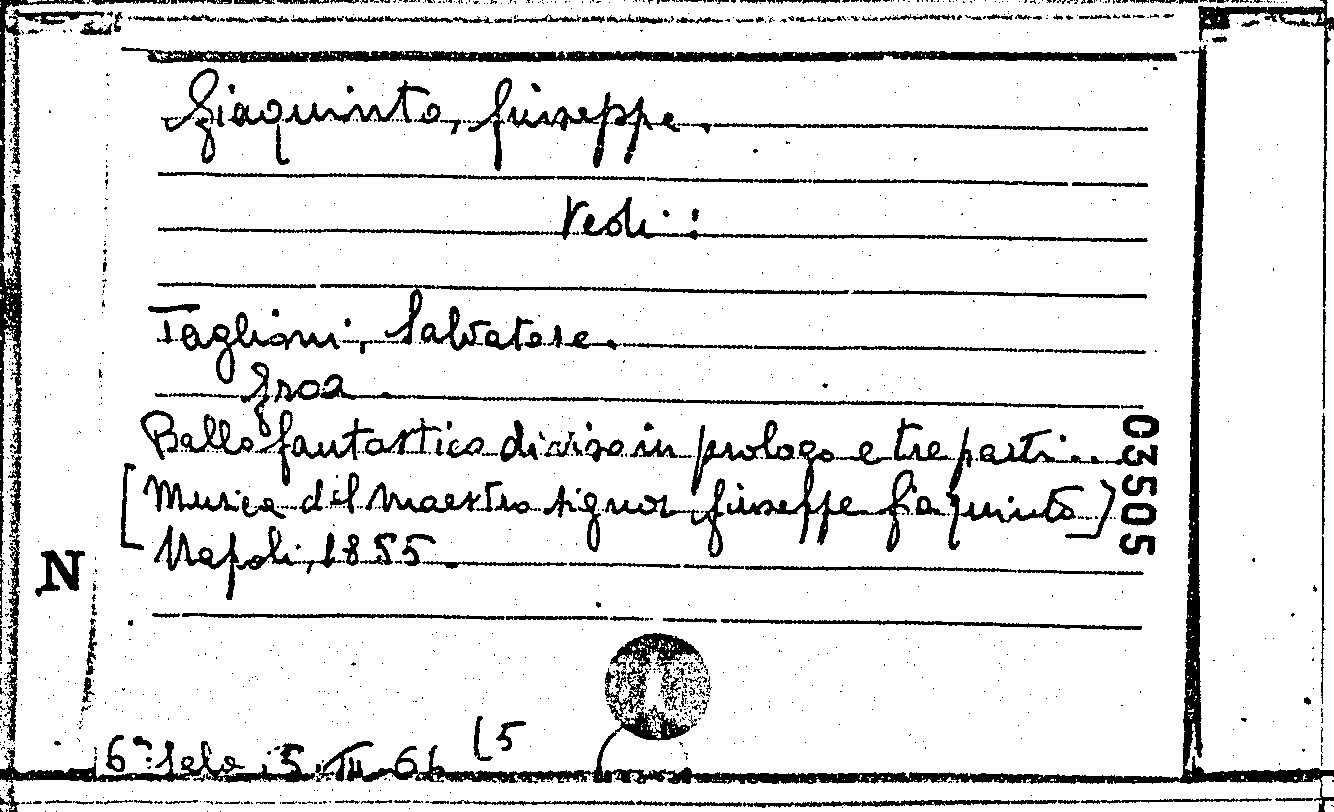 Giaquinto, Giuseppe.
Vedi:
Taglioni, Salvatore.
Zroa.
Ballo fantastico diviso in prologo e tre parti...
[Musica del maestro signor Giuseppe Giaquinto]
Napoli, 1855.
03505
N
[5
5. III